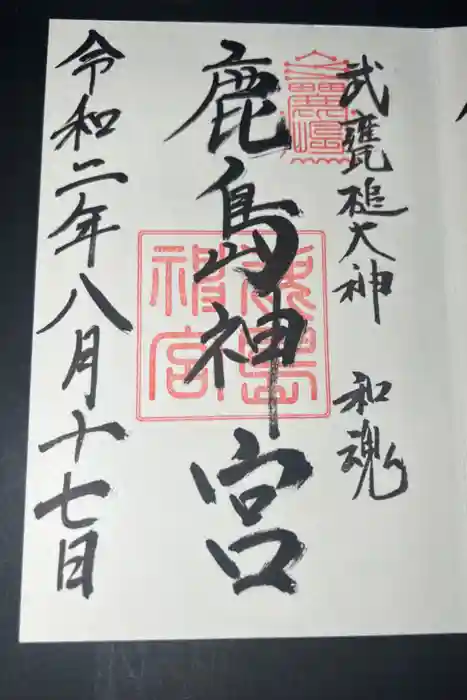 武甕槌大神 和魂
鹿島神宮
令和二年八月十七日
鹿島神宮